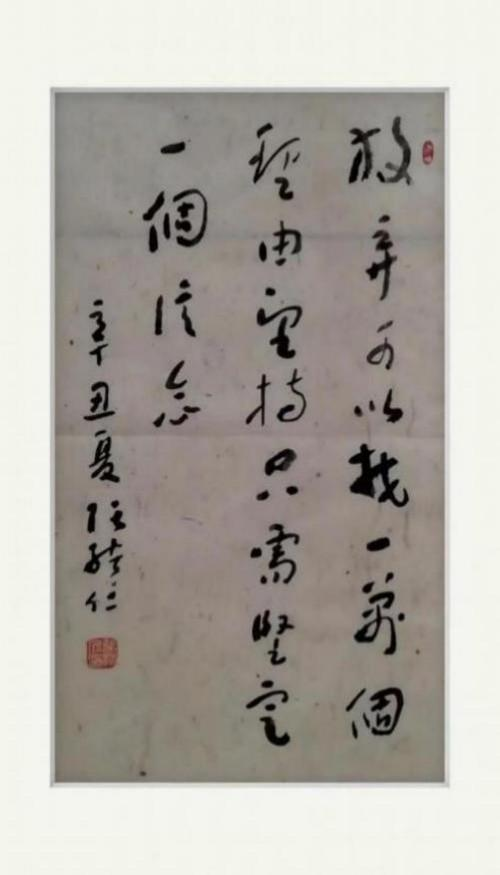 放弃可以找一萬個
理由堅持只需堅定
一個信念
辛丑夏